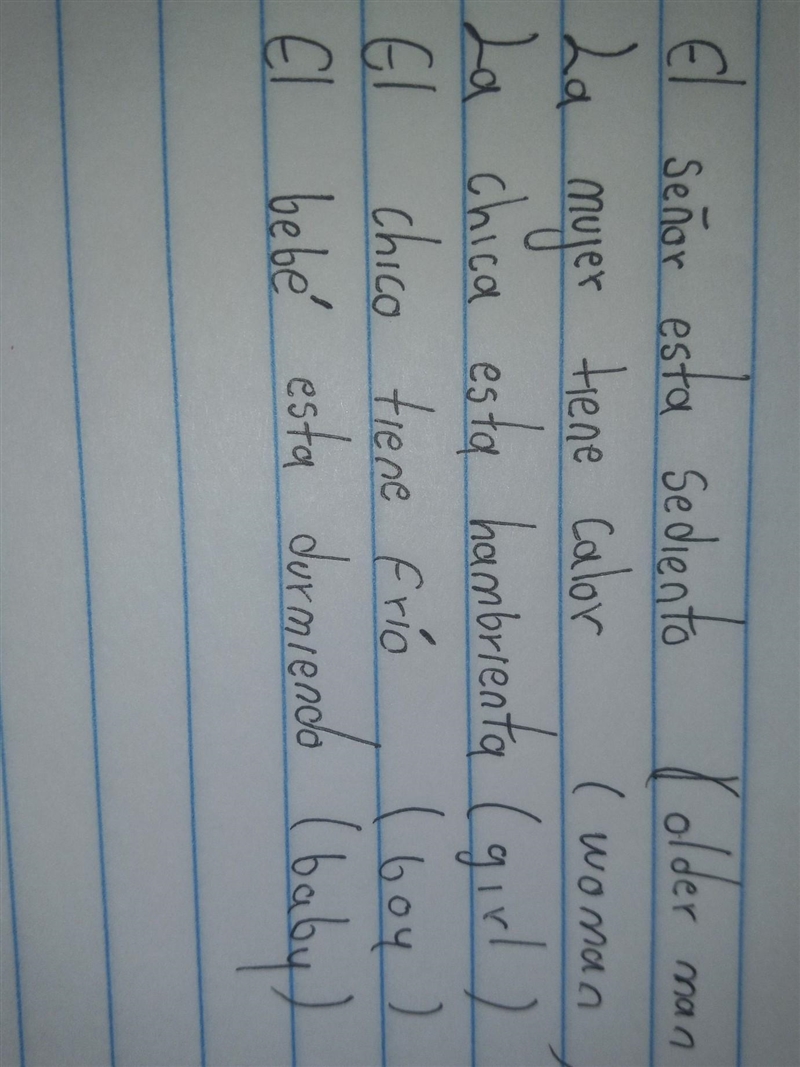 El señor esta sediento (older man
La mujer tiene calor (woman)
La chica esta hambrienta (girl)
El chico tiene frió (boy)
El bebé esta durmiendo (baby)